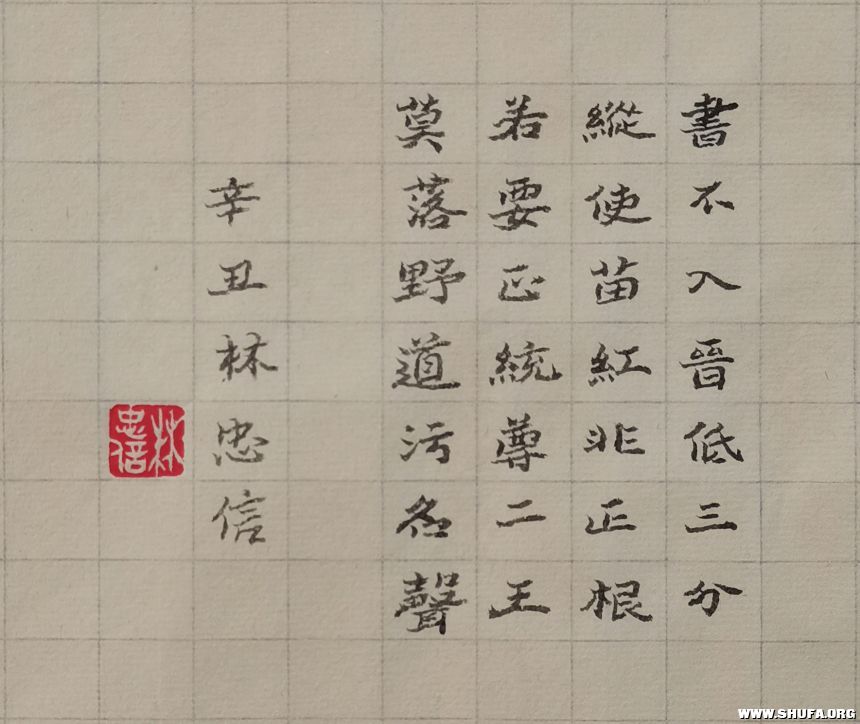 書不入晉低三分
縱使苗紅非正根
若要正統尊二王
莫落野道污名聲
辛丑林忠信
林忠信
WWW.SHUFA.ORG